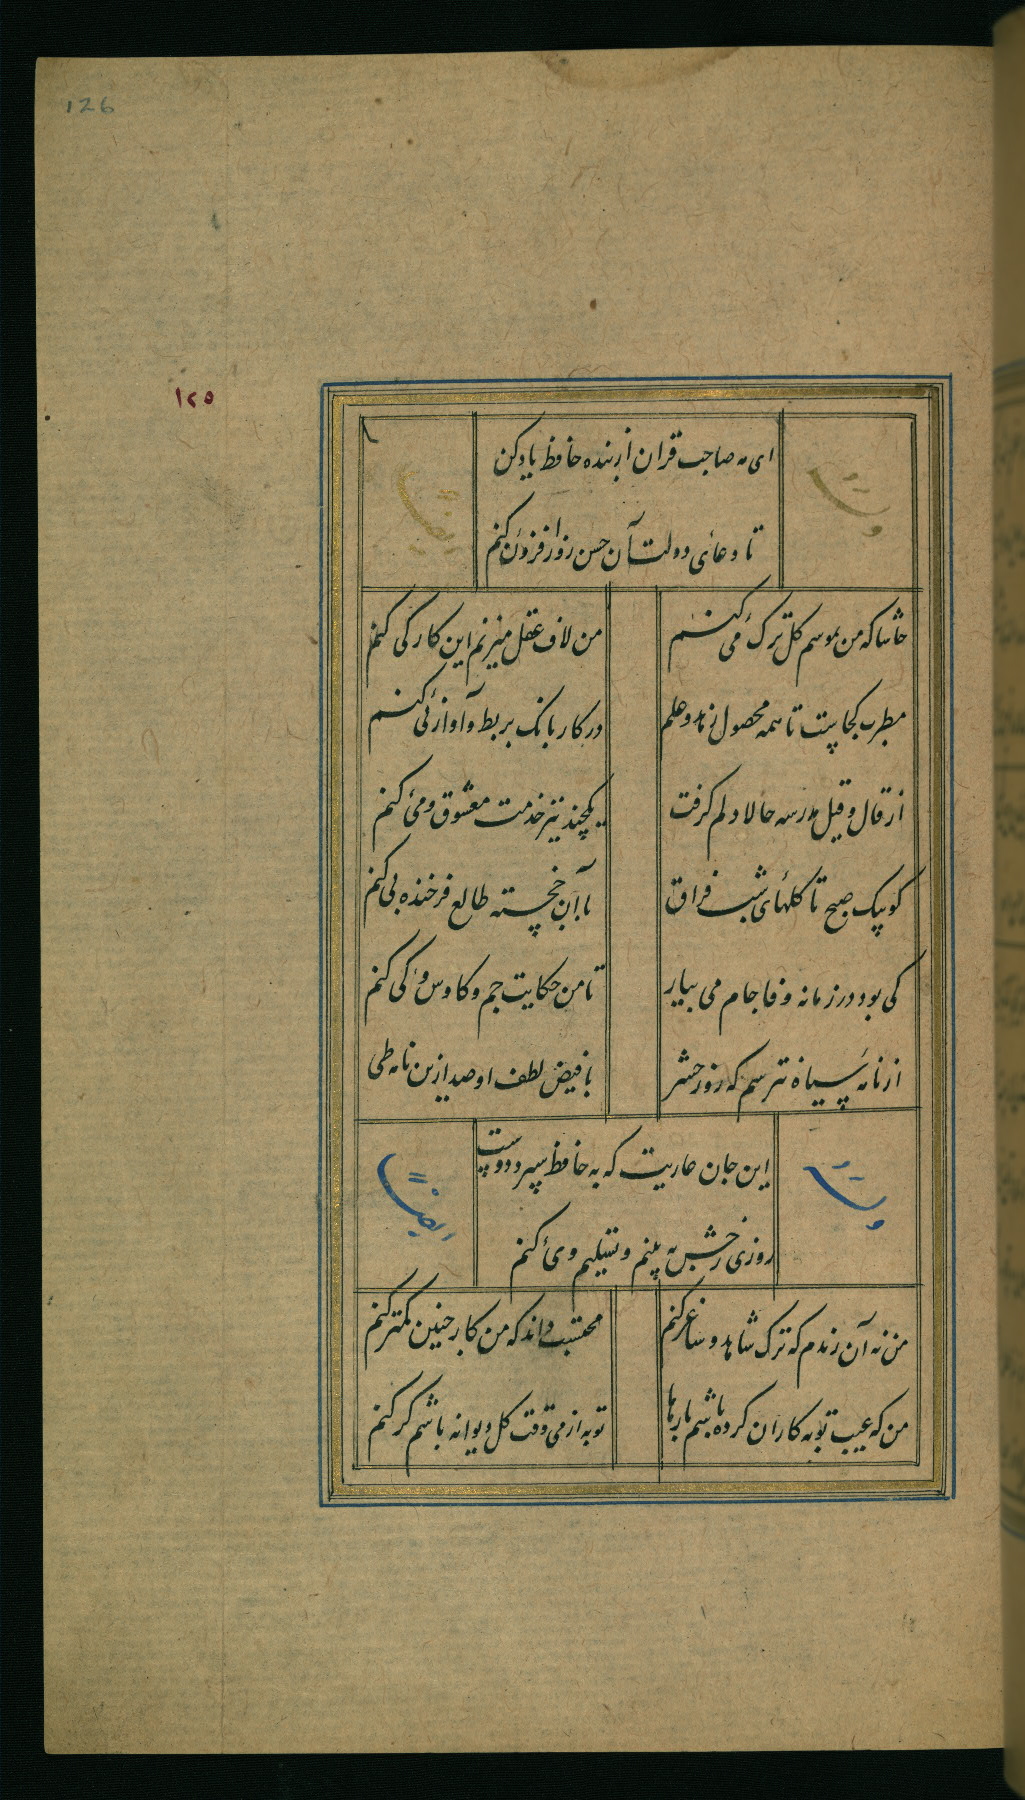 126
۱۲۵
ای مه صاحب قران از بنده حافظ یاد کن
تا دعای دولت آن حسن روز افزون کنم
وله
ایضاً
حاشا که من بموسم کل ترک می کنم
من لاف عقل میزنم این کار کی کنم
مطرب کجاست تا همه محصول زهد و علم
در کار بانک بربط و آواز نی کنم
از قال و قیل مدرسه حالا دلم کرفت
یکچند نیز خدمت معشوق و می کنم
کو پیک صبح تا کلهای شب فراق
با آن خجسته طالع فرخنده پی کنم
کی بود در زمانه وفا جام می بیار
تا من حکایت جم و کاوس و کی کنم
از نامه سیاه نترسم که روز حشر
با فیض لطف او صد ازین نامه طی
این جان عاریت که به حافظ سپرد دوست
روزی رخش به بینم و تسلیم وی کنم
ایضاً
من نه آن رندم که ترک شاهد و ساغر کنم
محتسب داند که من کار چنین کمتر کنم
من که عیب توبه کاران کرده باشم بارها
توبه از می وقت کل دیوانه باشم کر کنم